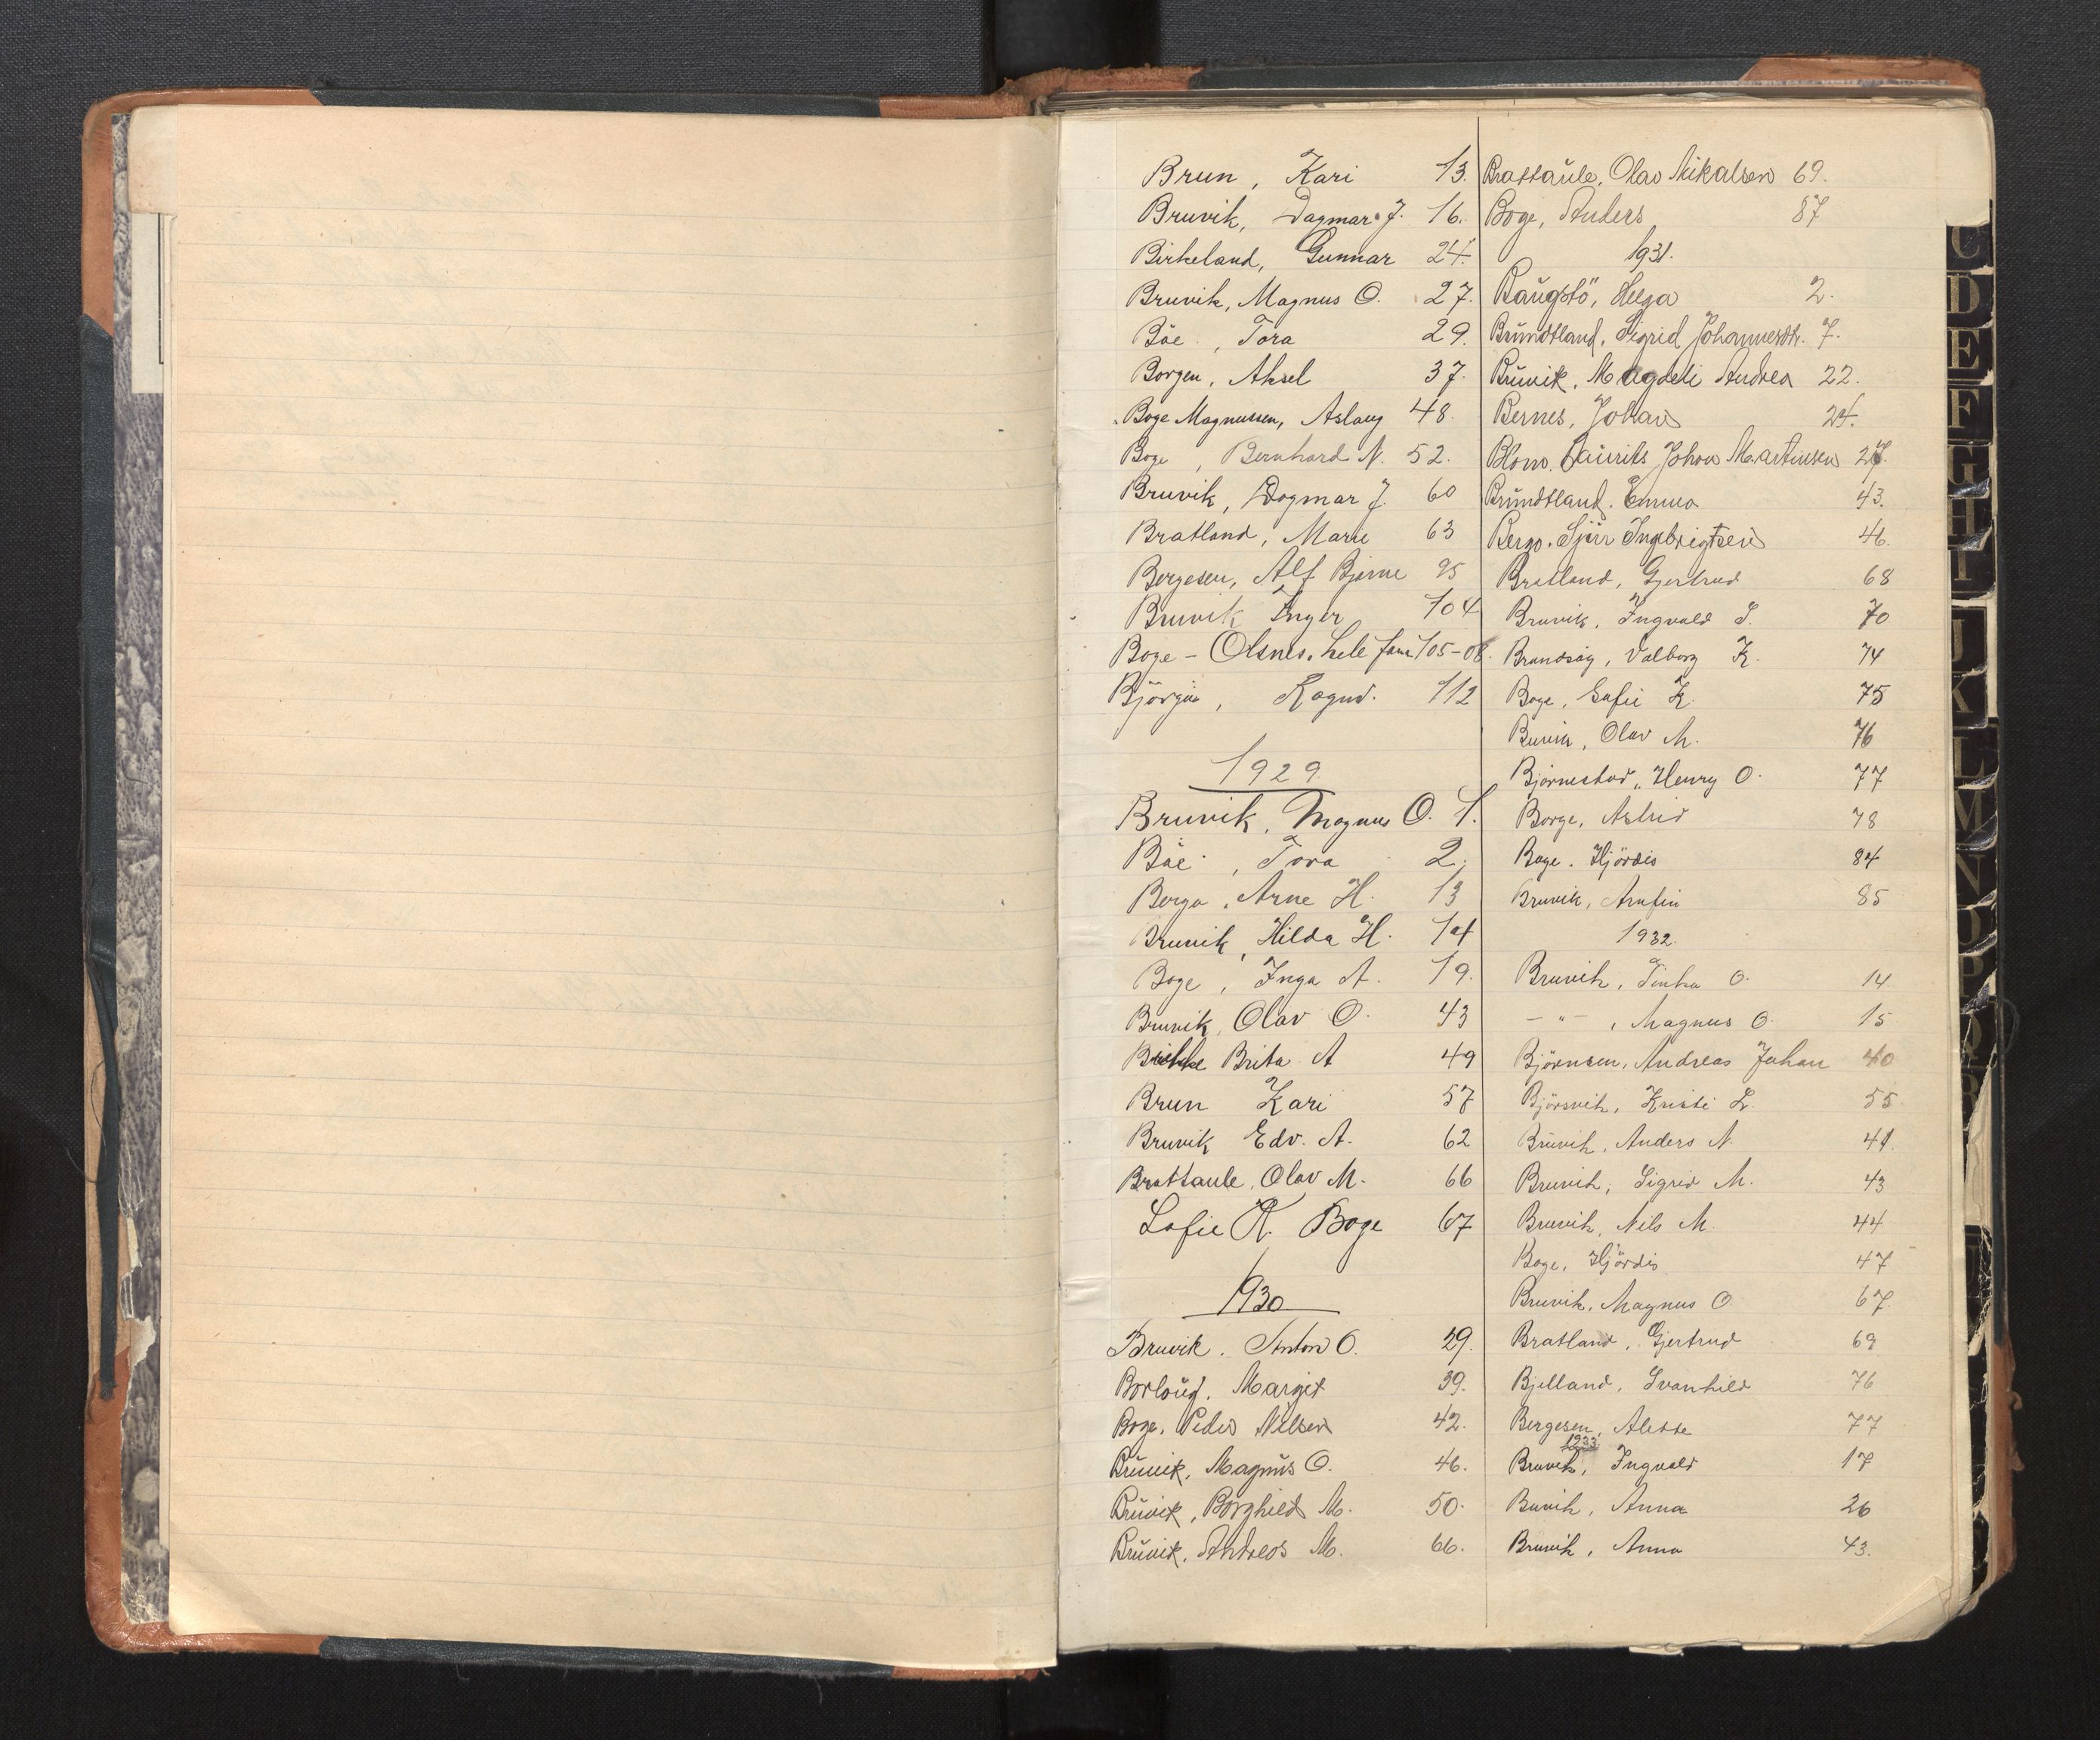 Brun, Kari 13.
Bruvik, Dagmar J. 16.
Birkeland, Gunnar 24.
Bruvik, Magnus O. 27.
Bäe, Tora 29.
Borgen, Aksel 37.
Boge Magnussen, Aslaug 48.
Boge, Bernhard N. 52.
Bruvik, Dagmar J. 60
Bratland, Marie 63
Bergesen, Alf Bjarne 95
Bruvik Inger 104
Boge - Olsnes. hele fam 105-08.
Ragnv. 112
1929
Bruvik, Magnus O. 1.
Bäe, Tora 2.
Berge, Arne H. 13
Bruvik, Hilda H. 14
Boge, Inga A. 19.
Bruvik, Olav O. 43
Brita A 49
Brun Kari 57
Bruvik Edv. A. 62
Brattaule, Olav M. 66
Sofie K. Boge 67
1930
Bruvik. Anton O. 29.
Borlaug. Margit 39.
Boge. Peder Nilsen 42.
Bruvik, Magnus O. 46.
Bruvik, Borghild M. 50.
Bruvik, Andreas M. 66.
Brattaule, Olav Mikalsen 69.
Boge, Anders 87
1931.
Baugstö, Helga 2.
Brundtland, Sigrid Johannesdtr. 7.
Bruvik, Magdeli Andrea 22.
Bernes, Johan 24.
Blom. Laurits Johan Martinsen 27.
Brundtland. Emma 43.
Berge. Sjur Ingebrigtsen 46.
Bratland, Gjertrud 68
Bruvik, Ingvald S. 70
Valborg K. 74
Boge, Sofie K. 75
Buvik, Olav M. 76
Bjørnestad, Henry O. 77
Borge, Astrid 78
Boge. Hjördis 84
Bruvik, Arnfin 85
1932.
Bruvik, O. 14
- " - , Magnus O. 15
Björnsen, Andreas Johan 40
Björsvik, Kristi L. 55
Bruvik, Anders N. 41.
Bruvik, Sigrid M. 43
Bruvik, Nils M. 44
Boge, Hjördis 47
Bruvik, Magnus O 67.
Bratland, Gjertrud 69
Bjelland, Svanhild 76
Bergesen, Alette 77
1933
Bruvik, Ingvald 17
Buvik, Anna 26
Bruvik, Anna 43.
C
D
E
F
G
H
I
J
K
L
M
N
O
P
Q
R